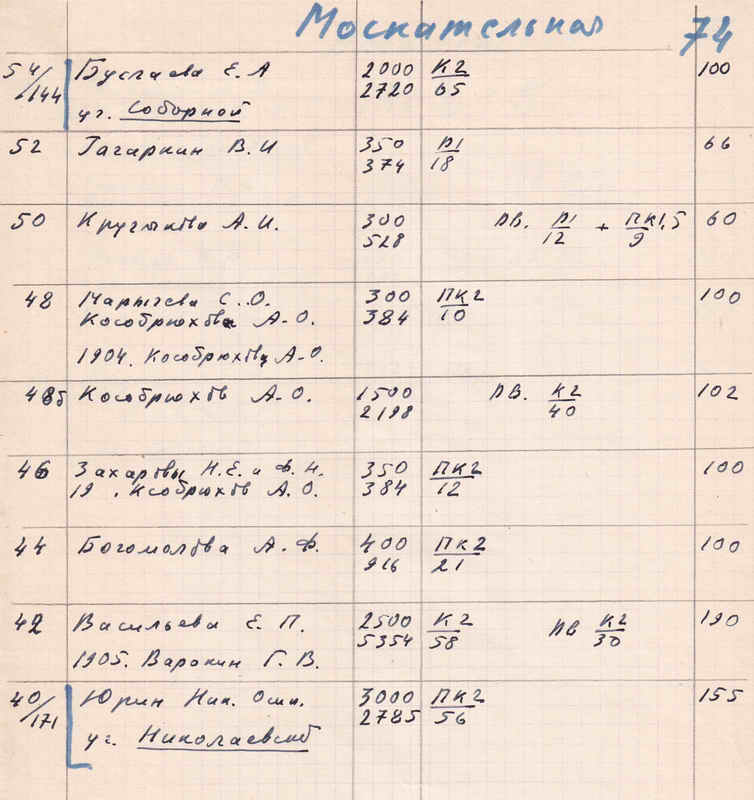 Москательная 74
54/144 Буслаева Е. А 2000 К2 100
уг. Соборной 2720 65
52 Гагаркин В. И 350 Д1 66
374 18
50 Круглкова А. И. 300 ДВ. Д1 + ПК1,5 60
528 12 9
48 С. О. 300 ПК2 100
Кособрюхова А-О. 384 10
1904. Кособрюхов А-О.
48б Кособрюхов А-О. 1500 ДВ. К2 102
2198 40
46 Захаровы Н. Е. и Ф. Н. 350 ПК2 100
19 . Ксобрюхов А. О. 384 12
44 Богомолова А. Ф. 400 ПК2 100
916 21
42 Васильева Е. П. 2500 К2 ДВ К2 190
5354 58 30
1905. Варакин Г. В.
40/171 Юрин Ник. Осип. 3000 ПК2 155
уг. Николаевской 2785 56